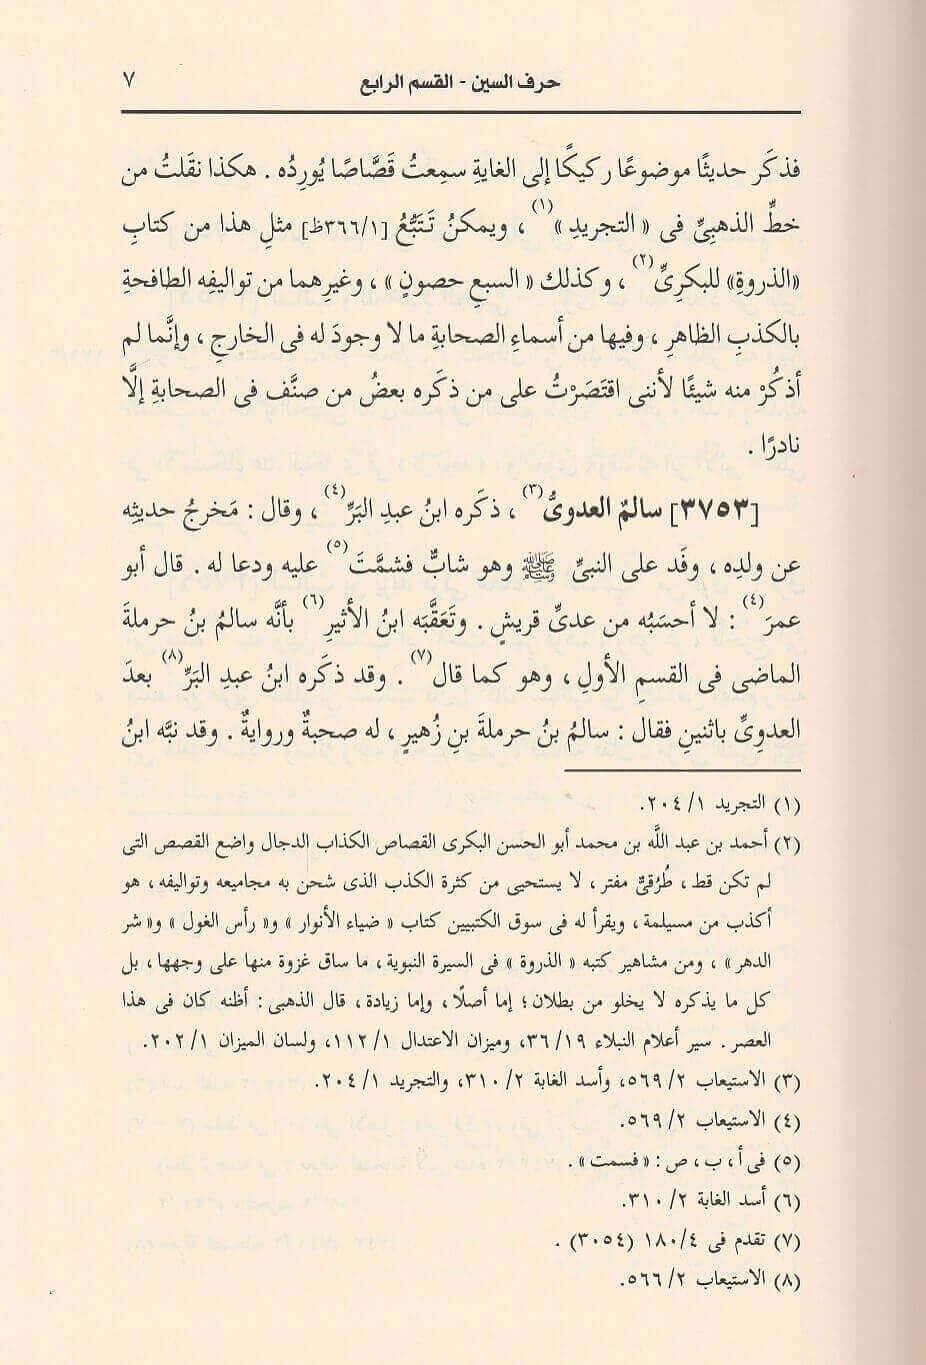 حرف السين - القسم الرابع ٧
فذكَر حديثًا موضوعًا ركيكًا إلى الغايةِ سمِعتُ قَصَّاصًا يُورِدُه . هكذا نقَلتُ من
خطِّ الذهبِىِّ فى « التجريدِ »(١) ، ويمكنُ تَتَبُّعُ [٣٦٦/١ظ] مثلِ هذا من كتابِ
«الذروةِ» للبكرىِّ(٢) ، وكذلك « السبعِ حصونٍ » ، وغيرِهما من تواليفِه الطافحةِ
بالكذبِ الظاهرِ ، وفيها من أسماءِ الصحابةِ ما لا وجودَ له فى الخارجِ ، وإنَّما لم
أذكُرْ منه شيئًا لأننى اقتَصَرْتُ على من ذكَره بعضُ من صنَّف فى الصحابةِ إلَّا
نادرًا .
[٣٧٥٣] سالمٌ العدوىُّ(٣) ، ذكَره ابنُ عبدِ البَرِّ(٤) ، وقال : مَخرجُ حديثِه
عن ولدِه ، وفَد على النبىِّ ﷺ وهو شابٌّ فشمَّتَ(٥) عليه ودعا له . قال أبو
عمرَ(٤) : لا أحسَبُه من عدىِّ قريشٍ . وتَعَقَّبَه ابنُ الأثيرِ(٦) بأنَّه سالمُ بنُ حرملةَ
الماضى فى القسمِ الأولِ ، وهو كما قال(٧) . وقد ذكَره ابنُ عبدِ البَرِّ(٨) بعدَ
العدوِىِّ باثنينِ فقال : سالمُ بنُ حرملةَ بنِ زُهيرٍ ، له صحبةٌ وروايةٌ . وقد نبَّه ابنُ
(١) التجريد ١/ ٢٠٤.
(٢) أحمد بن عبد اللَّه بن محمد أبو الحسن البكرى القصاص الكذاب الدجال واضع القصص التى
لم تكن قط ، طُرُقىٌّ مفتر ، لا يستحيى من كثرة الكذب الذى شحن به مجاميعه وتواليفه ، هو
أكذب من مسيلمة ، ويقرأ له فى سوق الكتبيين كتاب « ضياء الأنوار » و« رأس الغول » و« شر
الدهر » ، ومن مشاهير كتبه « الذروة » فى السيرة النبوية ، ما ساق غزوة منها على وجهها ، بل
كل ما يذكره لا يخلو من بطلان ؛ إما أصلًا ، وإما زيادة ، قال الذهبى : أظنه كان فى هذا
العصر . سير أعلام النبلاء ١٩/ ٣٦، وميزان الاعتدال ١/ ١١٢، ولسان الميزان ١/ ٢٠٢.
(٣) الاستيعاب ٢/ ٥٦٩، وأسد الغابة ٢/ ٣١٠، والتجريد ١/ ٢٠٤.
(٤) الاستيعاب ٢/ ٥٦٩.
(٥) فى أ ، ب ، ص : « فسمت » .
(٦) أسد الغابة ٢/ ٣١٠.
(٧) تقدم فى ١٨٠/٤ (٣٠٥٤) .
(٨) الاستيعاب ٢/ ٥٦٦.